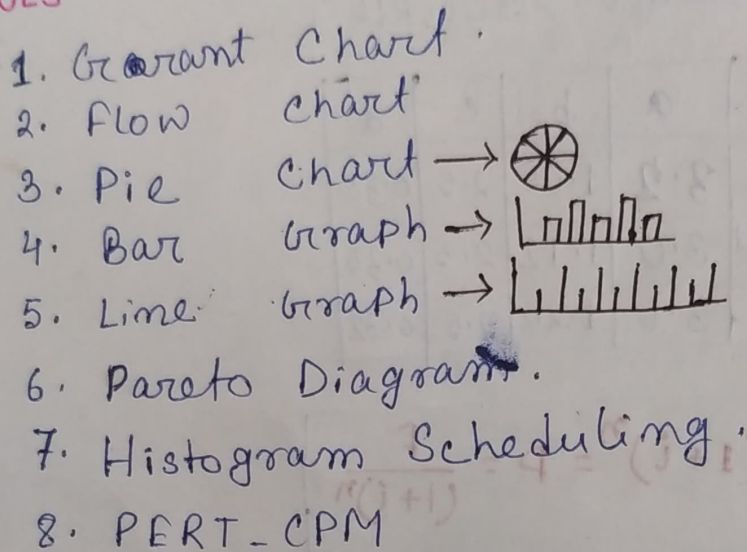 1. Grarant Chart.
2. Flow Chart
3. Pie Chart →
4. Bar Graph →
5. Line Graph →
6. Pareto Diagram.
7. Histogram Scheduling.
8. PERT - CPM